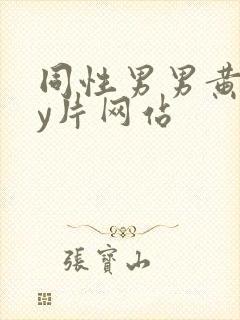 同性男男黄
y片网佔
張寶山